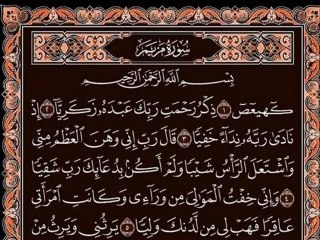 سُورَةُ مَرْيَمَ
بِسْمِ اللَّهِ الرَّحْمَٰنِ الرَّحِيمِ
كٓهيعٓصٓ ١ ذِكْرُ رَحْمَتِ رَبِّكَ عَبْدَهُۥ زَكَرِيَّآ ٢ إِذْ
نَادَىٰ رَبَّهُۥ نِدَآءً خَفِيًّا ٣ قَالَ رَبِّ إِنِّى وَهَنَ ٱلْعَظْمُ مِنِّى
وَٱشْتَعَلَ ٱلرَّأْسُ شَيْبًا وَلَمْ أَكُنۢ بِدُعَآئِكَ رَبِّ شَقِيًّا
٤ وَإِنِّى خِفْتُ ٱلْمَوَٰلِىَ مِن وَرَآءِى وَكَانَتِ ٱمْرَأَتِى
عَاقِرًا فَهَبْ لِى مِن لَّدُنكَ وَلِيًّا ٥ يَرِثُنِى وَيَرِثُ مِنْ